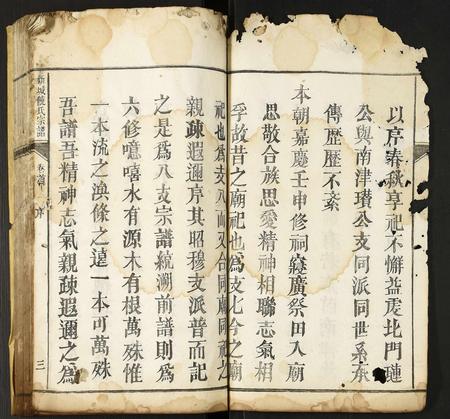 以序春秋享祀不懈益虔北門璉
公與南津瓚公支同派同世系承
傳歷歷不紊
本朝嘉慶壬申修祠寢廣祭田入廟
思敬合族思愛精神相聯志氣相
孚故昔之廟祀也爲支七今之廟
祀也爲支八而又合同廟同祀之
親疎遐邇序其昭穆支派普而記
之是爲八支宗譜統溯前譜則爲
六修噫嘻水有源木有根萬殊惟
一本流之渙條之遠一本可萬殊
吾譜吾精神志氣親疎遐邇之爲
新城饒氏宗譜 卷首 序 三